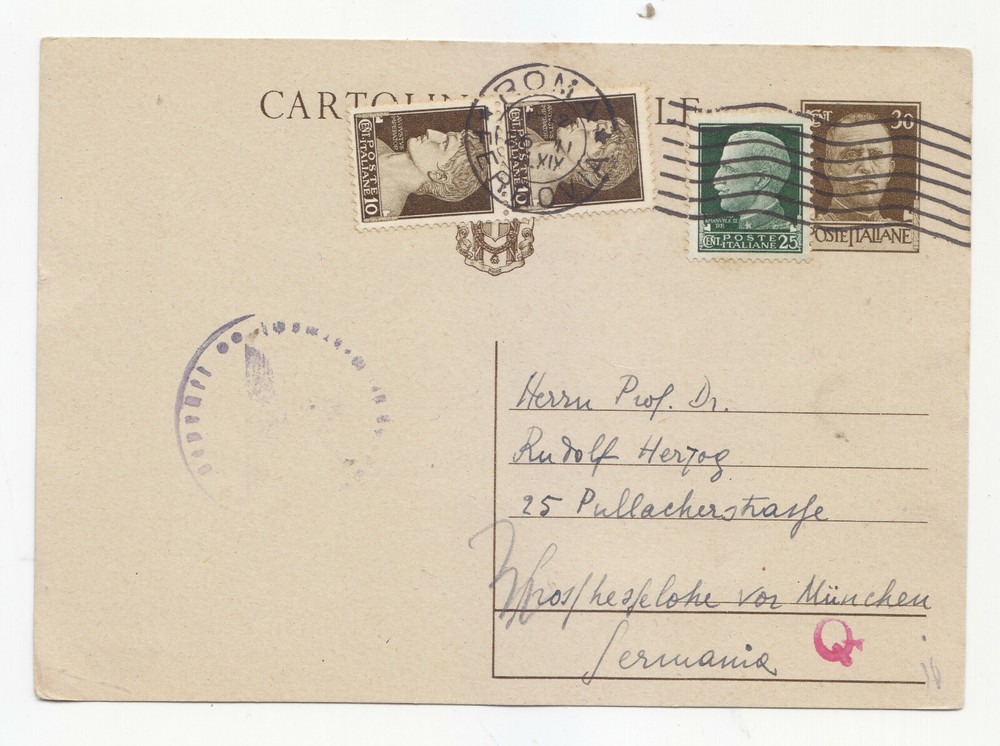 CARTOLIN LE
CENT. 10
POSTE
ITALIANE
CENT. 10
POSTE
ITALIANE
ROMA
XIX
FERROVIA
POSTE
CENT. ITALIANE 25
CENT 30
POSTE ITALIANE
Herrn Prof. Dr.
Rudolf Herzog
25 Pullacherstrasse
Grosshesselohe vor München
Germania
Q
16